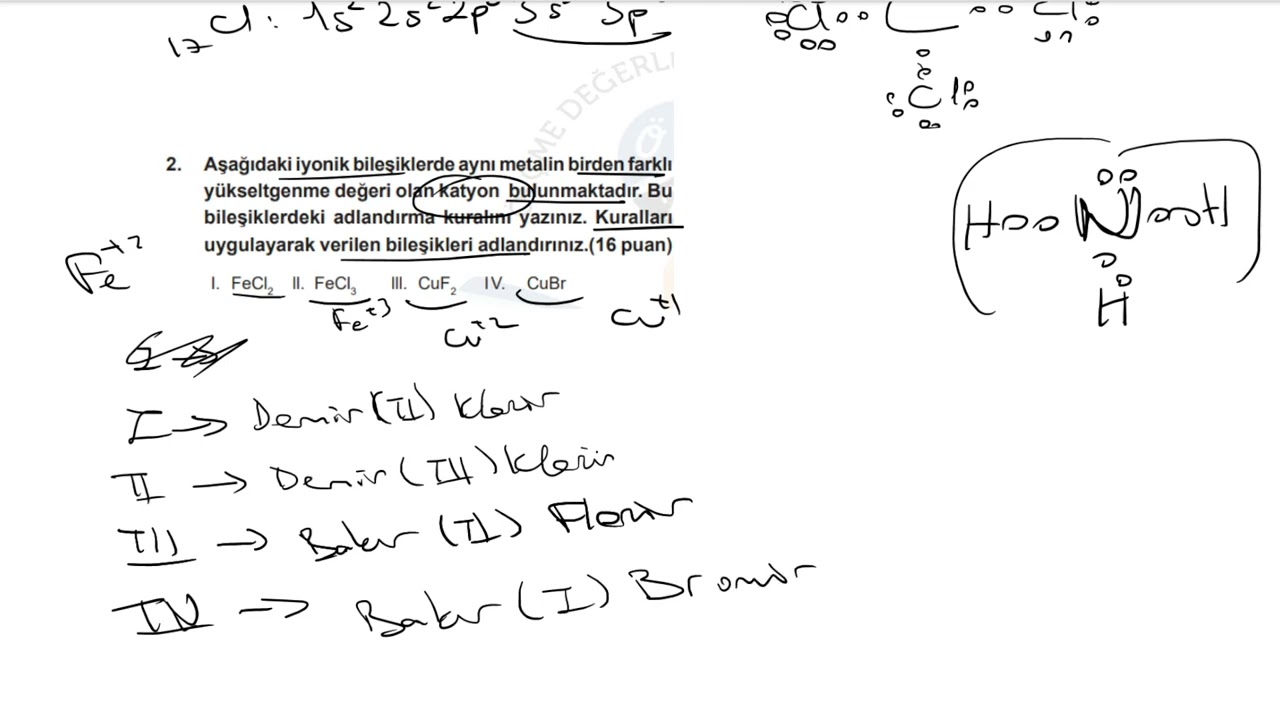 17Cl : 1s² 2s² 2p⁶ 3s² 3p
Cl C Cl
Cl
ME DEĞERL
2. Aşağıdaki iyonik bileşiklerde aynı metalin birden farklı
yükseltgenme değeri olan katyon bulunmaktadır. Bu
bileşiklerdeki adlandırma kuralını yazınız. Kuralları
uygulayarak verilen bileşikleri adlandırınız.(16 puan)
H N H
H
Fe+2
I. FeCl₂ II. FeCl₃ III. CuF₂ IV. CuBr
Fe+3 Cu+2 Cu+1
I → Demir (II) Klorür
II → Demir (III) Klorür
III → Bakır (II) Florür
IV → Bakır (I) Bromür